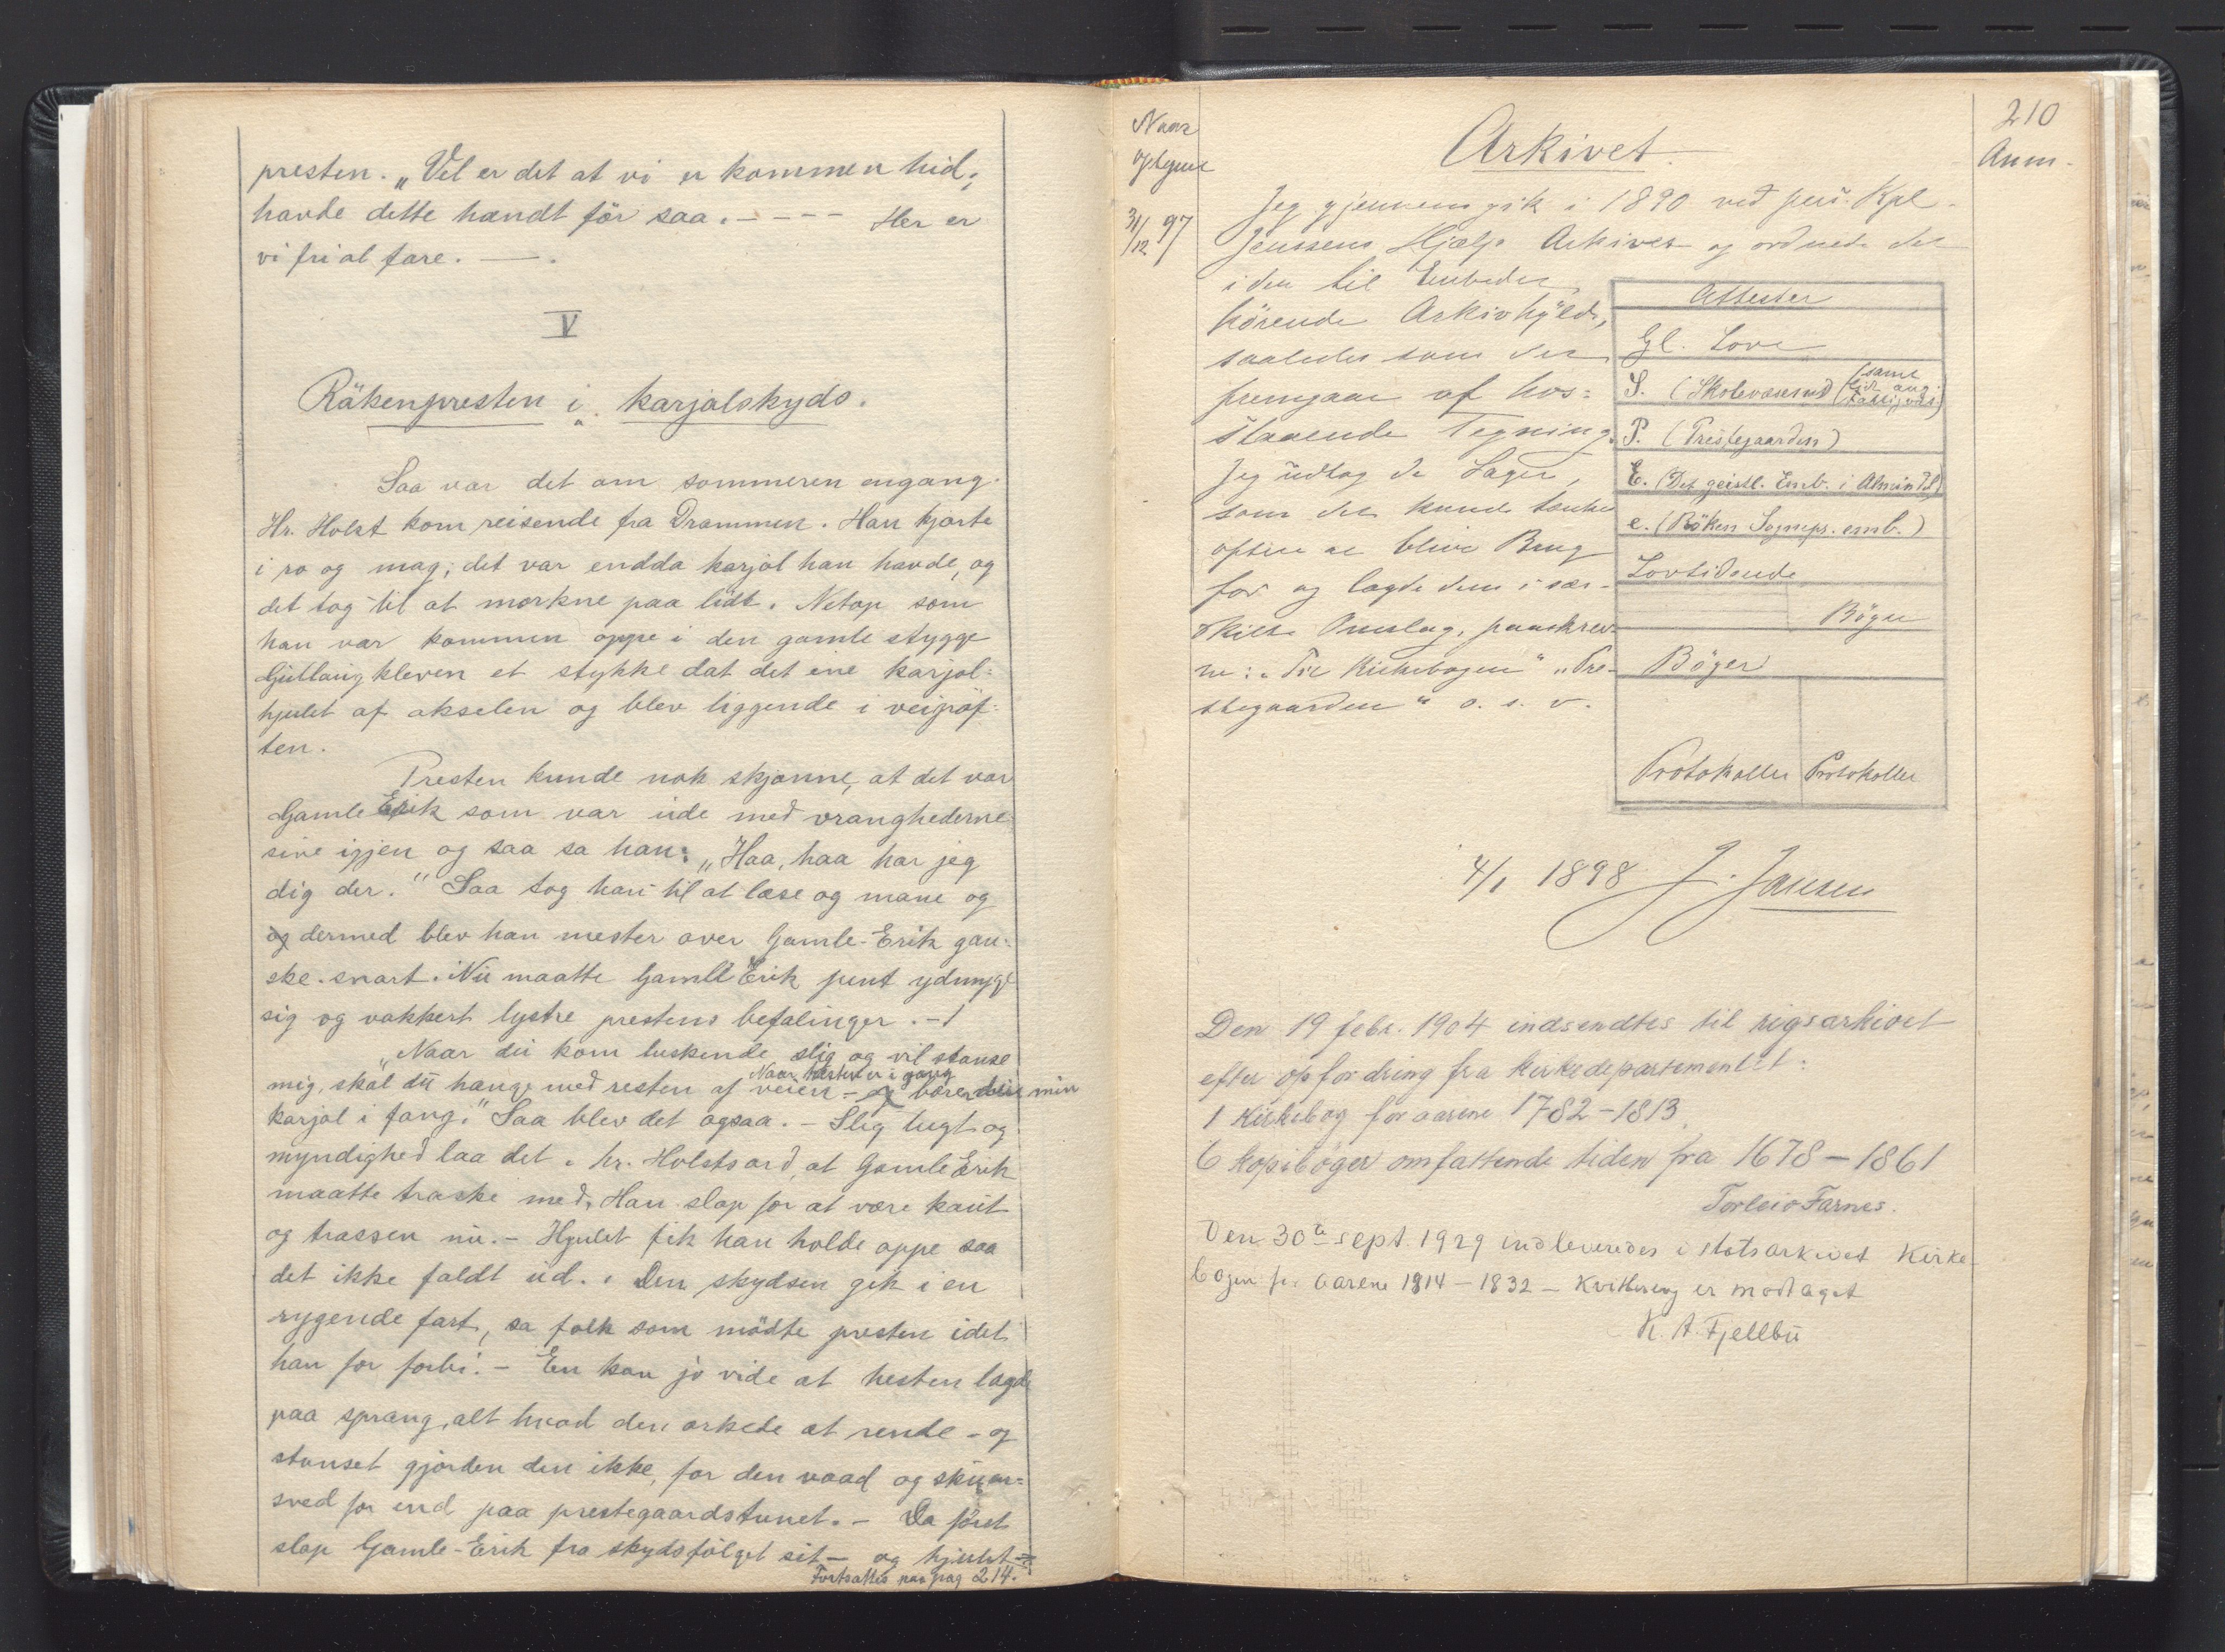 presten. „Vel er det at vi er kommen hid;
havde dette hændt för saa. - - - - Her er
vi fri al fare. —.
V
Räkenpresten i karjolskyds.
Saa var det om sommeren engang.
Hr. Holst kom reisende fra Drammen. Han kjørte
i ro og mag; det var endda karjol han havde, og
det tog til at mørkne paa lidt. Netop som
han var kommen oppe i den gamle stygge
Gullaugkleven et stykke dat det ene karjol-
hjulet af akselen og blev liggende i veigröf-
ten.
Presten kunde nok skjønne, at det var
Gamle Erik som var ude med vranghederne
sine igjen og saa sa han: „Haa, haa har jeg
dig der." Saa tog han til at læse og mane og
og dermed blev han mester over Gamle-Erik gan-
ske snart. Nu maatte Gamle Erik pent ydmyge
sig og vakkert lystre prestens befalinger. -
„Naar du kom luskende slig og vil stanse
Naar hesten er i gang
mig, skal du hænge med resten af veien - og bære min
karjol i fang." Saa blev det ogsaa. - Slig tugt og
myndighed laa det i hr. Holsts ord, at Gamle Erik
maatte traske med. Han slap for at være kaut
og trassen nu. - Hjulet fik han holde oppe saa
det ikke faldt ud. Den skydsen gik i en
rygende fart, sa folk som mödte presten idet
han for forbi. - En kan jo vide at hesten lagde
paa sprang, alt hvad den orkede at rende - og
stanset gjorden den ikke, før den vaad og skum-
sved for ind paa prestegaardstunet. - Da først
slap Gamle-Erik fra skydsfölget sit - og hjulet
Fortsættes paa pag 214.
210
Naar
optegnet
Arkivet.
Anm.
31/12 97
Jeg gjennemgik i 1890 ved pers. Kpl.
Jenssens Hjælp Arkivet og ordnede det
i den til Embedet
hörende Arkivhylde,
saaledes som det
fremgaar af hos-
staaende Tegning.
Jeg udtog de Sager,
som det kunde tænkes
oftere at blive Brug
for og lagde dem i sær-
skilt Omslag, paaskrev-
ne: „Til Kirkebogen" „Pre-
stegaarden" o. s. v.
Attester
Gl. Love
S. (Skolevæsenet (samt
P. (Prestegaarden)
E. (Det geistl. Emb. i Almindel.)
e. (Röken Sognepr. emb.)
Lovtidende
Böger
Böger
Protokoller Protokoller
4/1 1898 J. Jansen
Den 19 febr. 1904 indsendtes til rigsarkivet
efter opfordring fra kirkedepartementet:
1 Kirkebog for aarene 1782-1813.
6 kopibøger omfattende tiden fra 1678-1861
Torleiv Farnes.
Den 30te sept. 1929 indleveredes i statsarkivet Kirke-
bogen for aarene 1814-1832 - Kvittering er modtaget
K. A. Fjellbu